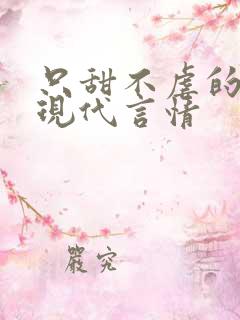 只甜不虐的
現代言情
嚴究